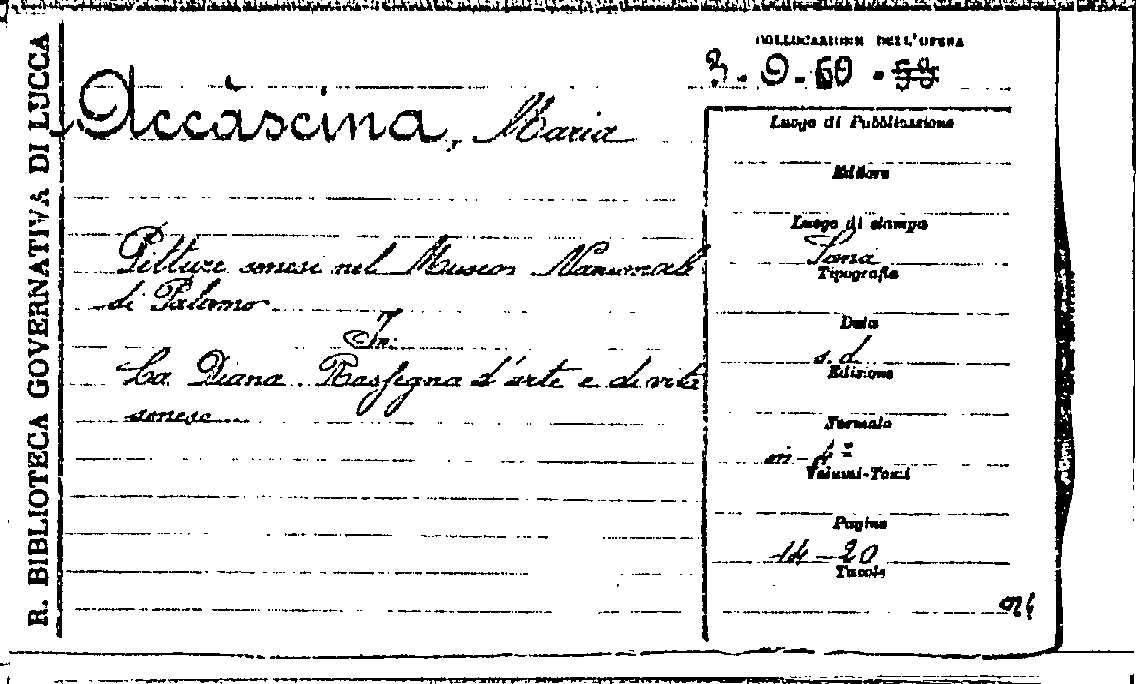 R. BIBLIOTECA GOVERNATIVA DI LUCCA
COLLOCAZIONE DELL'OPERA
3-9-60-59
Accàscina, Maria
Pitture senesi nel Museo Nazionale
di Palermo
In:
La Diana. Rassegna d'arte e di vita
senese
Luogo di Pubblicazione
Editore
Luogo di stampa
Siena
Tipografia
Data
s. d.
Edizione
Formato
in-4º
Volumi-Tomi
Pagine
14-20
Tavole